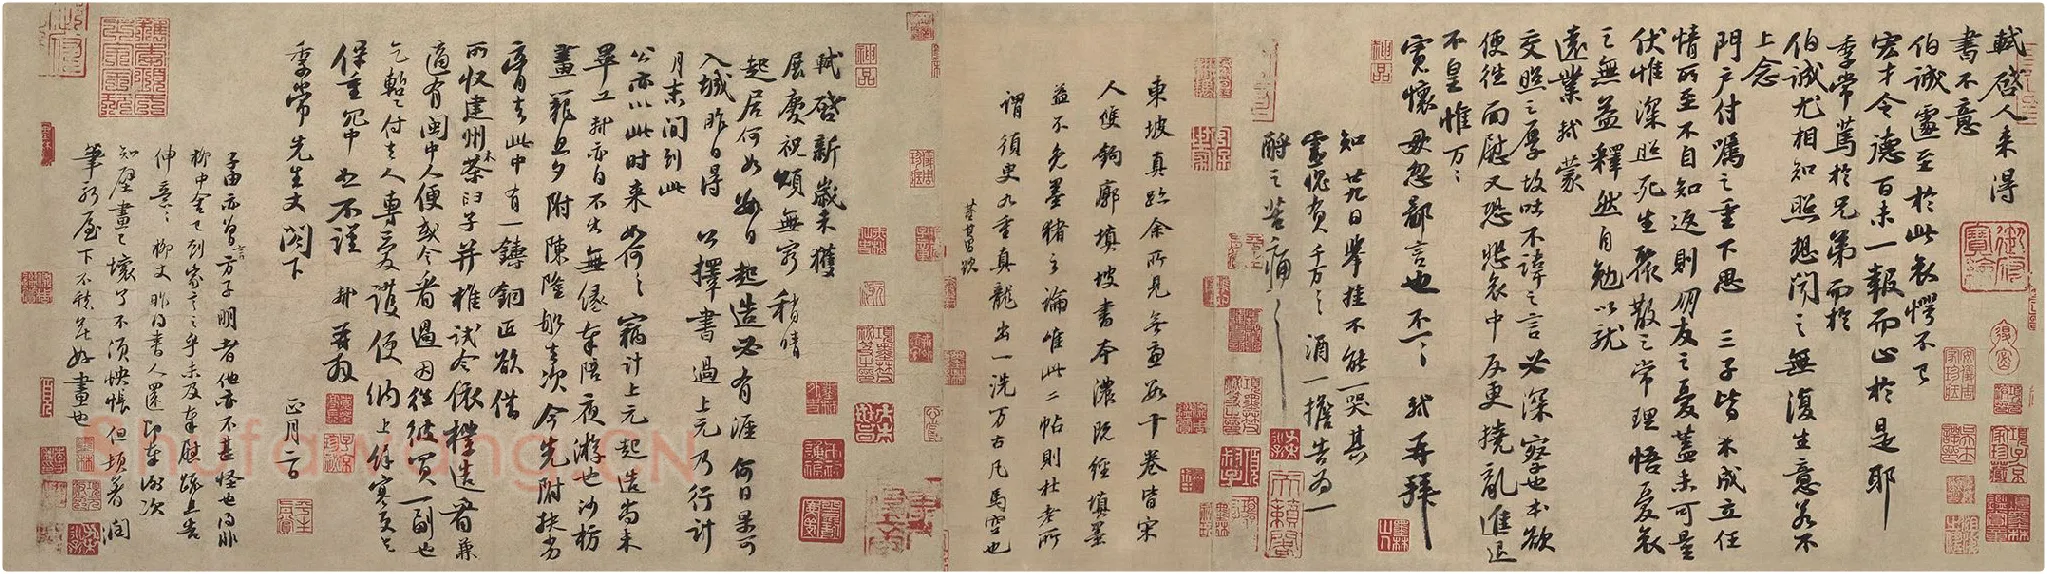 軾啓人来得
書不意
伯誠遽至於此哀愕不已
宏才令德百未一報而止於是耶
季常篤於兄弟而於
伯誠尤相知照想聞之無復生意若不
上念
門户付嘱之重下思三子皆未成立任
情所至不自知返則朋友之憂蓋未可量
伏惟深照死生聚散之常理悟憂哀
之無益釋然自勉以就
遠業軾蒙
交照之厚故吐不諱之言必深察也本欲
便往面慰又恐悲哀中反更撓亂進退
不皇惟万万
寬懷毋忽鄙言也不一一軾再拜
知廿九日舉挂不能一哭其
靈愧負千万千万酒一擔告为一
酹之苦痛苦痛
東坡真跡余所見無慮數十卷皆宋
人雙鉤廓填坡書本濃既經填墨
益不免墨豬之論唯此二帖則杜老所
謂須臾九重真龍出一洗万古凡馬空也
董其昌題
軾啓新歲未獲
展慶祝頌無窮稍晴
起居何如數日起造必有涯何日果可
入城昨日得公擇書過上元乃行計
月末間到此
公亦以此時来如何如何竊計上元起造尚未
畢工軾亦自不出無緣奉陪夜游也沙枋
畫籠旦夕附陳隆船去次今先附扶劣
膏去此中有一鑄銅匠欲借
所收建州木茶臼子并椎試令依樣造看兼
適有閩中人便或令看過因往彼買一副也
乞暫付去人專愛護便納上餘寒更乞
保重冗中恕不謹軾再拜
季常先生丈閣下
正月二日
子由亦曾言方子明者他亦不甚怪也得非
柳中舍已到家言之乎未及奉慰疏且告
伸意伸意柳丈昨得書人還即奉謝次
知壁畫已壞了不須怏悵但頓著潤
筆新屋下不愁無好畫也
Shufawang.CN